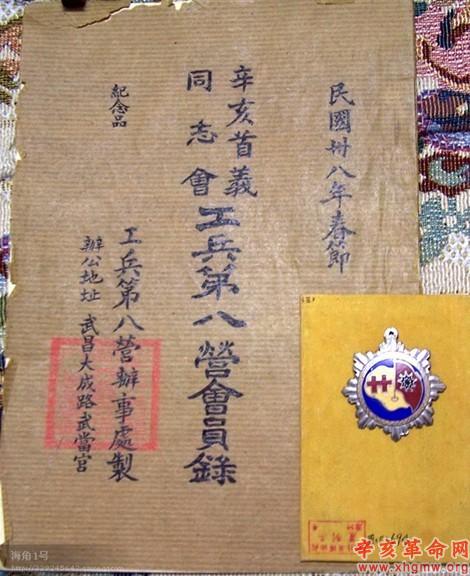 民國卅八年春節
辛亥首義
同志會
工兵第八營會員錄
紀念品
工兵第八營辦事處製
辦公地址 武昌大成路武當宮
海角1号
辛亥革命网
www.xhgmw.org